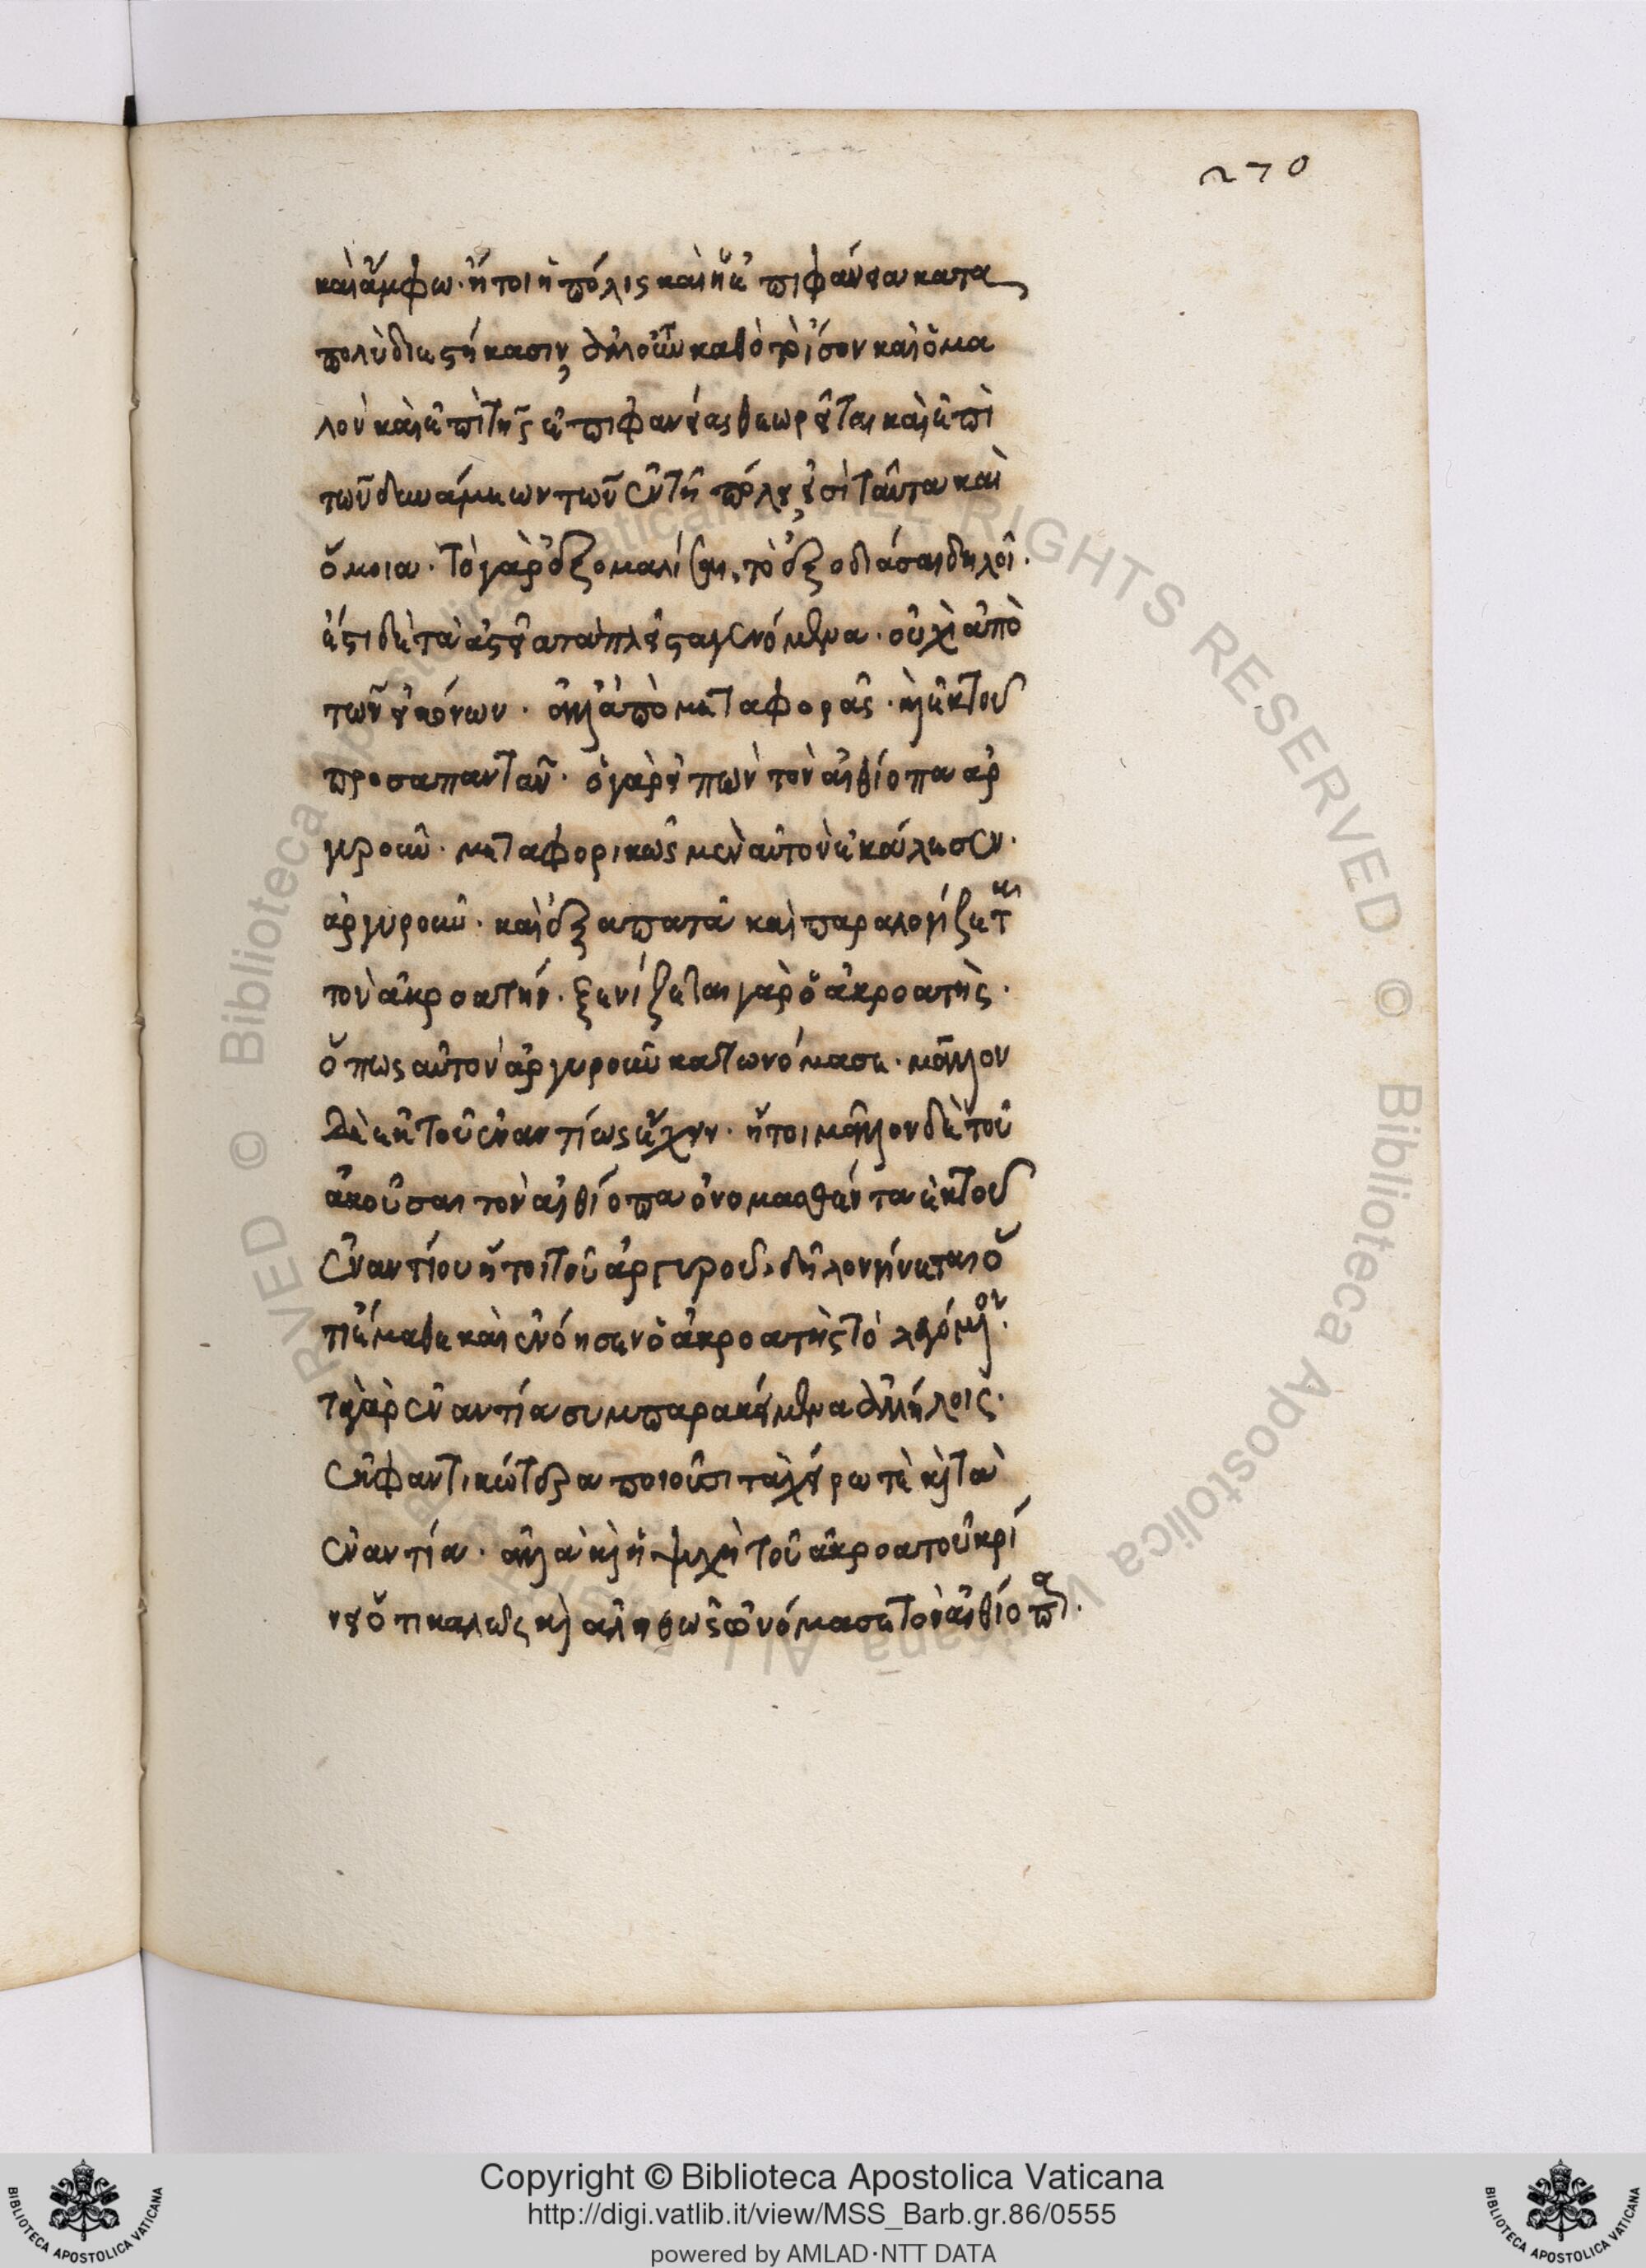 270
καὶ ἄμφω· ἤτοι ἡ πόλις καὶ ἡ ἐπιφάνεια κατα
πολὺ διεστήκασιν, ἀλλ' οὖν καθὸ τὸ ἴσον καὶ ὁμα
λὸν καὶ ἐπὶ τῆς ἐπιφανείας θεωρεῖται καὶ ἐπὶ
τῶν δυνάμεων τῶν ἐν τῇ πόλει, εἰσὶ ταῦτα καὶ
ὅμοια· τὸ γὰρ ἐξομαλίσαι, τὸ ἐξοδιάσαι δηλοῖ·
ἔστι δὲ τὰ ἀστεῖα τὰ πλεῖστα γενόμενα· οὐχὶ ἀπὸ
τῶν εἰκόνων· ἀλλ' ἀπὸ μεταφορᾶς· καὶ ἐκ τοῦ
προσαπαντᾶν· ὁ γὰρ εἰπὼν τὸν αἰθίοπα ἀρ
γυροῦν· μεταφορικῶς μὲν αὐτὸν ἐκάλεσεν·
ἀργυροῦν· καὶ ἐξαπατᾶ καὶ παραλογίζεται
τὸν ἀκροατήν· ξενίζεται γὰρ ὁ ἀκροατὴς·
ὅπως αὐτὸν ἀργυροῦν κατωνόμασε· μᾶλλον
δὲ ἐκ τοῦ ἐναντίως ἔχειν· ἤτοι μᾶλλον δὲ τοῦ
ἀκοῦσαι τὸν αἰθίοπα ὀνομασθέντα ἐκ τοῦ
ἐναντίου ἤτοι τοῦ ἀργυροῦ, δῆλον γίνεται ὅ
τι ἔμαθε καὶ ἐνόησεν ὁ ἀκροατὴς τὸ λεγόμενον·
τὰ γὰρ ἐναντία συμπαρακείμενα ἀλλήλοις·
ἐμφαντικώτερα ποιοῦσι τὰ χείρω τὲ καὶ τὰ
ἐναντία· ἀλλὰ καὶ ἡ ψυχὴ τοῦ ἀκροατοῦ κρί
νει ὅτι καλῶς καὶ ἀληθῶς ὠνόμασε τὸν αἰθίοπα·
Copyright © Biblioteca Apostolica Vaticana
http://digi.vatlib.it/view/MSS_Barb.gr.86/0555
powered by AMLAD·NTT DATA